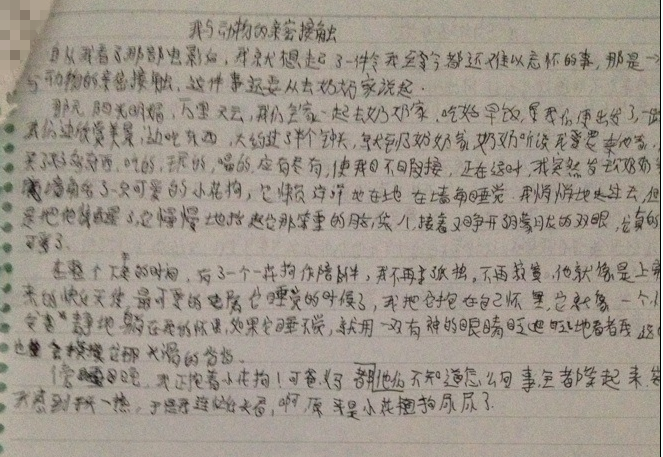 我与动物的亲密接触
自从我看了那部电影后,我就想起了一件令我至今都还难以忘怀的事,那是一
与动物的亲密接触,这件事还要从去奶奶家说起.
那天,阳光明媚,万里无云,我们全家一起去奶奶家,吃好早饭,我们便出发了,一
我们边欣赏美景,边吃东西,大约过了半个钟头,就到了奶奶家,奶奶听说我要来
买了好多东西,吃的,玩的,喝的,应有尽有,使我目不暇接,正在这时,我突然发现奶奶
墙角有了一只可爱的小花狗,它懒洋洋地在地在墙角睡觉.我悄悄地走过去,但
是把他惊醒了,它慢慢地抬起它那笨重的脑袋儿,接着又睁开朦胧的双眼,它真的
可爱了.
在整个下午的时间,有了一个小花狗作陪伴,我不再孤独,不再寂寞,他就像是上
来的快乐天使,最可爱的地它睡觉的时候了,我把它抱在自己怀里,它就像一个
安静地躺在我的怀里,如果它睡不觉,就用一双有神的眼睛眨巴眨巴地看着我
也会摸摸它那光滑的
我正抱着小花狗!可爸都他们不知道怎么回事,全都笑起来,
我感到一热,于是,啊,原来是小花狗尿尿了.